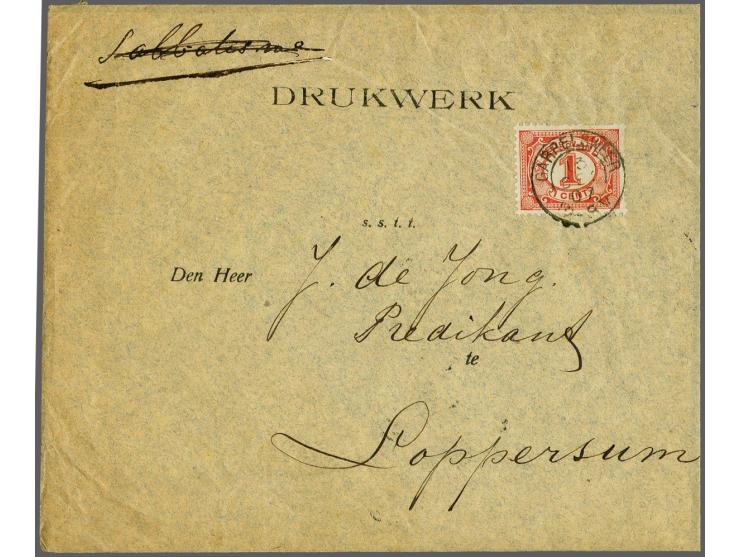 Sabbatisme
DRUKWERK
GARRELSWEER
1
CENT
s. s. t. t.
Den Heer J. de Jong.
Predikant
te
Loppersum